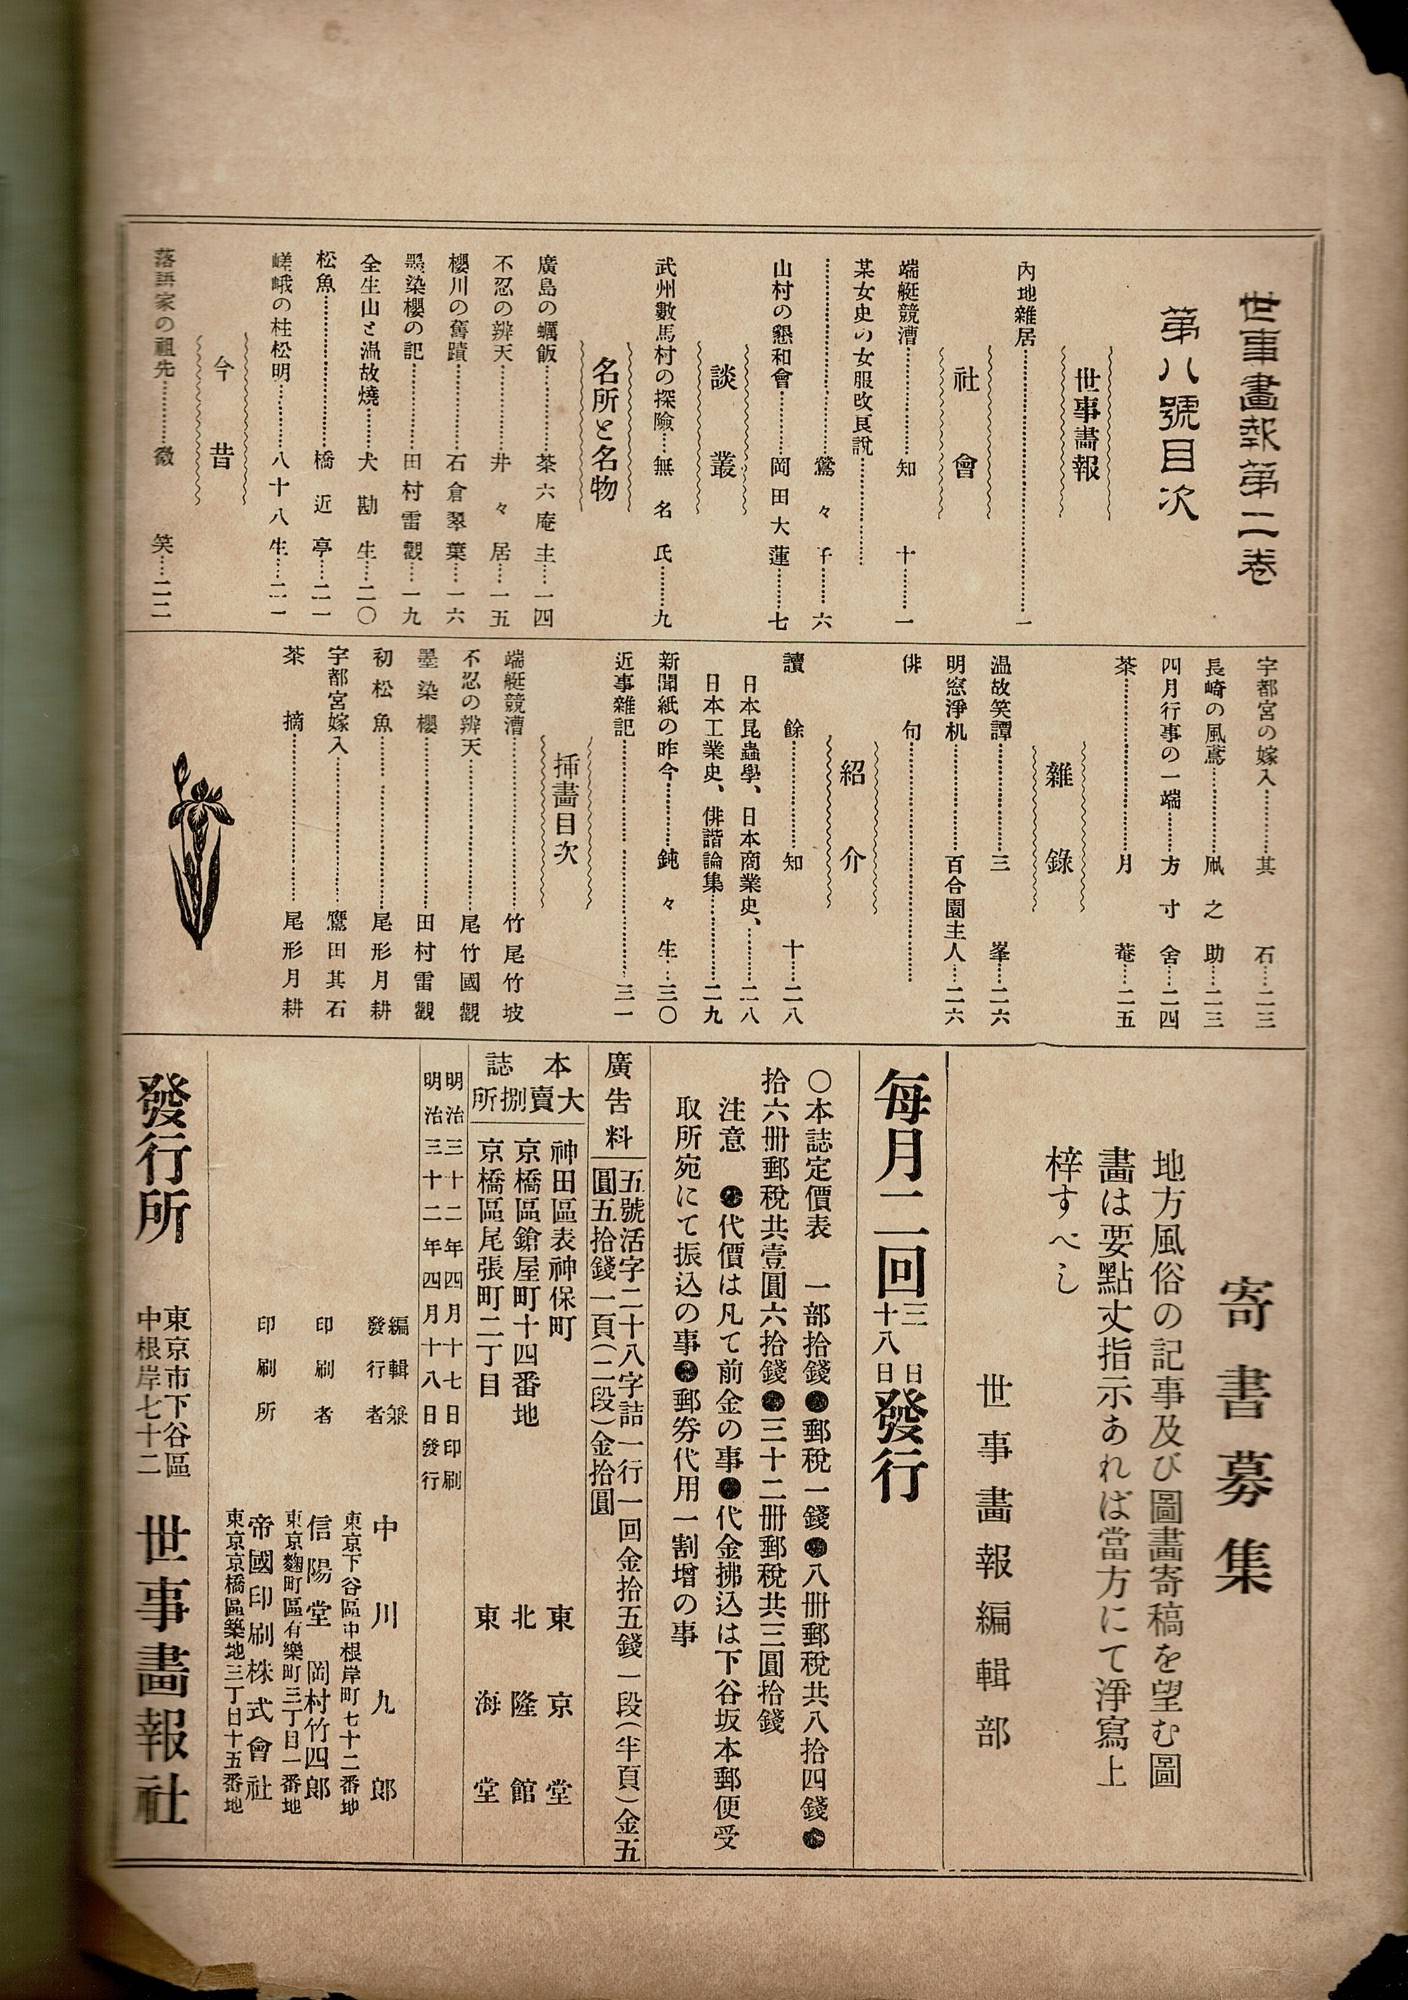 世事畫報第二卷
第八號目次
世事畫報
內地雜居……一
社會
端艇競漕……知十……一
某女史の女服改良說……
……鶯々子……六
山村の懇和會……岡田大蓮……七
談叢
武州數馬村の探險…無名氏……九
名所と名物
廣島の蠣飯……茶六庵主…一四
不忍の辨天……井々居…一五
櫻川の舊蹟……石倉翠葉…一六
墨染櫻の記……田村雷觀…一九
全生山と温故燒……犬勘生…二〇
松魚……橋近亭…二一
嵯峨の柱松明……八十八生…二一
今昔
落語家の祖先……微笑…二二
宇都宮の嫁入……其石…二三
長崎の風鳶……凧之助…二三
四月行事の一端……方寸舍…二四
茶……月菴…二五
雜錄
温故笑譚……三峯…二六
明窓淨机……百合園主人…二六
俳句……
紹介
讀餘……知十…二八
日本昆蟲學、日本商業史、……二八
日本工業史、俳諧論集……二九
新聞紙の昨今……鈍々生…三〇
近事雜記……三一
挿畵目次
端艇競漕……竹尾竹坡
不忍の辨天……尾竹國觀
墨染櫻……田村雷觀
初松魚……尾形月耕
宇都宮嫁入……鷹田其石
茶摘……尾形月耕
寄書募集
地方風俗の記事及び圖畫寄稿を望む圖
畫は要點丈指示あれば當方にて淨寫上
梓すべし
世事畫報編輯部
每月二回三日十八日發行
〇本誌定價表　一部拾錢●郵稅一錢●八冊郵稅共八拾四錢●
拾六冊郵稅共壹圓六拾錢●三十二冊郵稅共三圓拾錢
注意　●代價は凡て前金の事●代金拂込は下谷坂本郵便受
取所宛にて振込の事●郵券代用一割增の事
廣告料
五號活字二十八字詰一行一回金拾五錢一段(半頁)金五
圓五拾錢一頁(二段)金拾圓
本誌
大賣捌所
神田區表神保町　東京堂
京橋區鎗屋町十四番地　北隆館
京橋區尾張町二丁目　東海堂
明治三十二年四月十七日印刷
明治三十二年四月十八日發行
編輯兼
發行者
中川九郎
東京下谷區中根岸町七十二番地
印刷者
信陽堂　岡村竹四郎
東京麴町區有樂町三丁目一番地
印刷所
帝國印刷株式會社
東京京橋區築地三丁目十五番地
發行所
東京市下谷區
中根岸七十二
世事畫報社